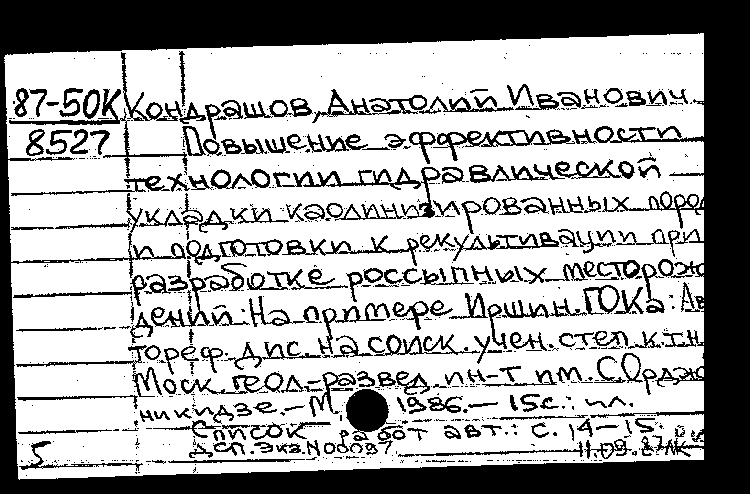 87-50К Кондрашов, Анатолий Иванович
8527 Повышение эффективности
технологии гидравлической
укладки каолинизированных пород
и подготовки к рекультивации при
разработке россыпных месторож
дений: На примере Иршин. ГОКа: Ав
тореф. дис. на соиск. учен. степ. к.т.н
Моск. геол.-развед. ин-т им. С. Орджо
никидзе. - М. 1986. - 15с.: ил.
Список работ авт.: с. 14-15.
5 ДСП. Экз. N00087 11.09.87